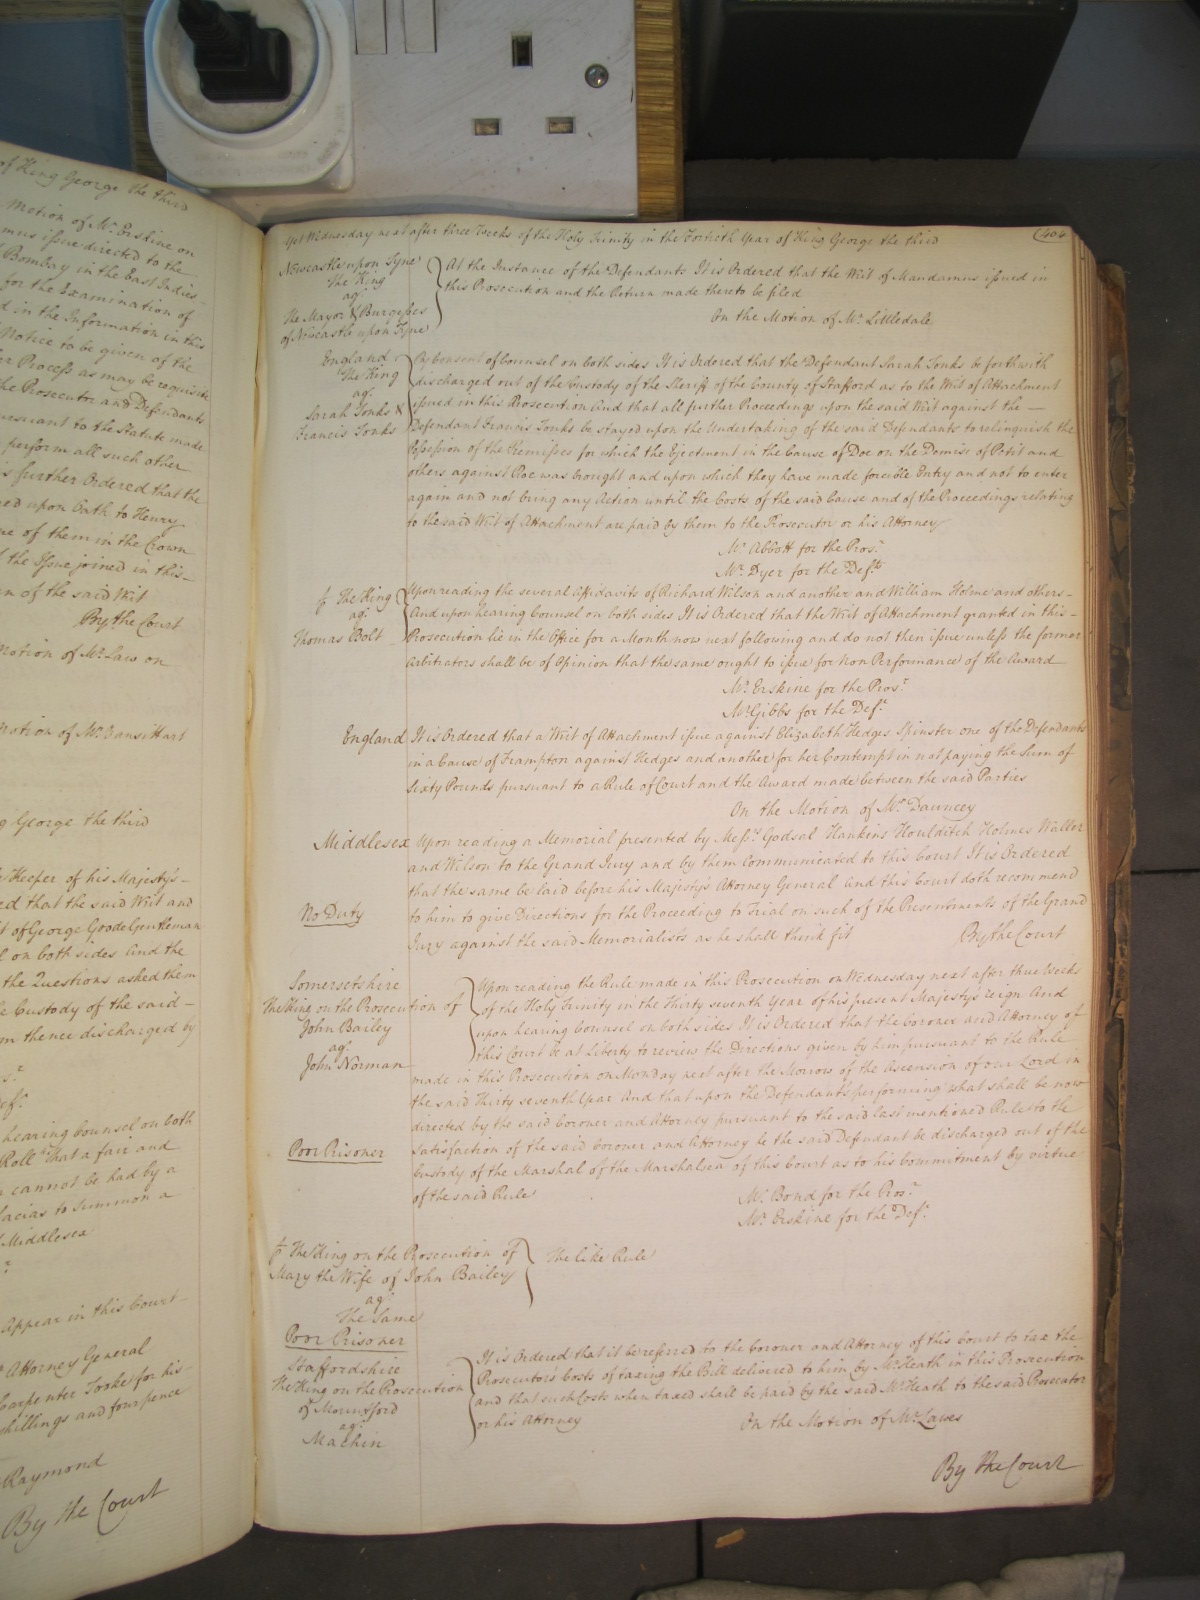 of King George the third
Motion of Mr. Erskine on
mus issue directed to the
Bombay in the East Indies
for the Examination of
d in the Information in this
Notice to be given of the
er Process as may be requisite
the Prosecutor and Defendants
pursuant to the Statute made
perform all such other
is further Ordered that the
ed upon Oath to Henry
ne of them in the Crown
the Issue joined in this
n of the said Writ
By the Court
Motion of Mr. Law on
Motion of Mr. Vansittart
g George the third
Keeper of his Majesty's
ed that the said Writ and
t of George Goode Gentleman
l on both sides And the
the Questions asked them
e Custody of the said
m thence discharged by
s.r
Def.t
hearing Counsel on both
Roll that a fair and
cannot be had by a
facias to summon a
Middlesex
appear in this Court
Attorney General
Carpenter Tooke for his
shillings and fourpence
Raymond
By the Court
Yet Wednesday next after three Weeks of the Holy Trinity in the Fortieth Year of King George the third
404
Newcastle upon Tyne
The King
ag.t
The Mayor & Burgesses
of Newcastle upon Tyne
At the Instance of the Defendants It is Ordered that the Writ of Mandamus issued in
this Prosecution and the Return made thereto be filed
On the Motion of Mr. Littledale
England
The King
ag.t
Sarah Tonks &
Francis Tonks
By Consent of Counsel on both sides It is Ordered that the Defendant Sarah Tonks be forthwith
discharged out of the Custody of the Sheriff of the County of Stafford as to the Writ of Attachment
issued in this Prosecution And that all further Proceedings upon the said Writ against the
Defendant Francis Tonks be stayed upon the Undertaking of the said Defendants to relinquish the
Possession of the Premisses for which the Ejectment in the Cause of Doe on the Demise of Petit and
others against Roe was brought and upon which they have made forcible Entry and not to enter
again and not bring any Action until the Costs of the said Cause and of the Proceedings relating
to the said Writ of Attachment are paid by them to the Prosecutor or his Attorney
Mr. Abbott for the Pros.r
Mr. Dyer for the Def.ts
The King
ag.t
Thomas Bolt
Upon reading the several Affidavits of Richard Wilson and another and William Holme and others
And upon hearing Counsel on both sides It is Ordered that the Writ of Attachment granted in this
Prosecution lie in the Office for a Month now next following and do not then issue unless the former
Arbitrators shall be of Opinion that the same ought to issue for Non Performance of the Award
Mr. Erskine for the Pros.r
Mr. Gibbs for the Def.t
England It is Ordered that a Writ of Attachment issue against Elizabeth Hedges Spinster one of the Defendants
in a Cause of Frampton against Hedges and another for her Contempt in not paying the Sum of
Sixty Pounds pursuant to a Rule of Court and the Award made between the said Parties
On the Motion of Mr. Dauncey
Middlesex Upon reading a Memorial presented by Mess.rs Godsal Hankins Houlditch Holmes Waller
and Wilson to the Grand Jury and by them Communicated to this Court It is Ordered
that the same be laid before his Majesty's Attorney General And this Court doth recommend
No Duty to him to give Directions for the Proceeding to Trial on such of the Presentments of the Grand
Jury against the said Memorialists as he shall think fit
By the Court
Somersetshire
The King on the Prosecution of
John Bailey
ag.t
John Norman
Poor Prisoner
Upon reading the Rule made in this Prosecution on Wednesday next after three Weeks
of the Holy Trinity in the Thirty seventh Year of his present Majesty's reign And
upon hearing Counsel on both sides It is Ordered that the Coroner and Attorney of
this Court be at Liberty to review the Directions given by him pursuant to the Rule
made in this Prosecution on Monday next after the Morrow of the Ascension of our Lord in
the said Thirty seventh Year And that upon the Defendants performing what shall be now
directed by the said Coroner and Attorney pursuant to the said last mentioned Rule to the
satisfaction of the said Coroner and Attorney he the said Defendant be discharged out of the
Custody of the Marshal of the Marshalsea of this Court as to his Commitment by virtue
of the said Rule
Mr. Bond for the Pros.r
Mr. Erskine for the Def.t
The King on the Prosecution of
Mary the Wife of John Bailey
ag.t
The Same
Poor Prisoner
The like Rule
Staffordshire
The King on the Prosecution
of Mountford
ag.t
Machin
It is Ordered that it be referred to the Coroner and Attorney of this Court to tax the
Prosecutors Costs of taxing the Bill delivered to him by Mr. Heath in this Prosecution
and that such Costs when taxed shall be paid by the said Mr. Heath to the said Prosecutor
or his Attorney
On the Motion of Mr. Lawes
By the Court